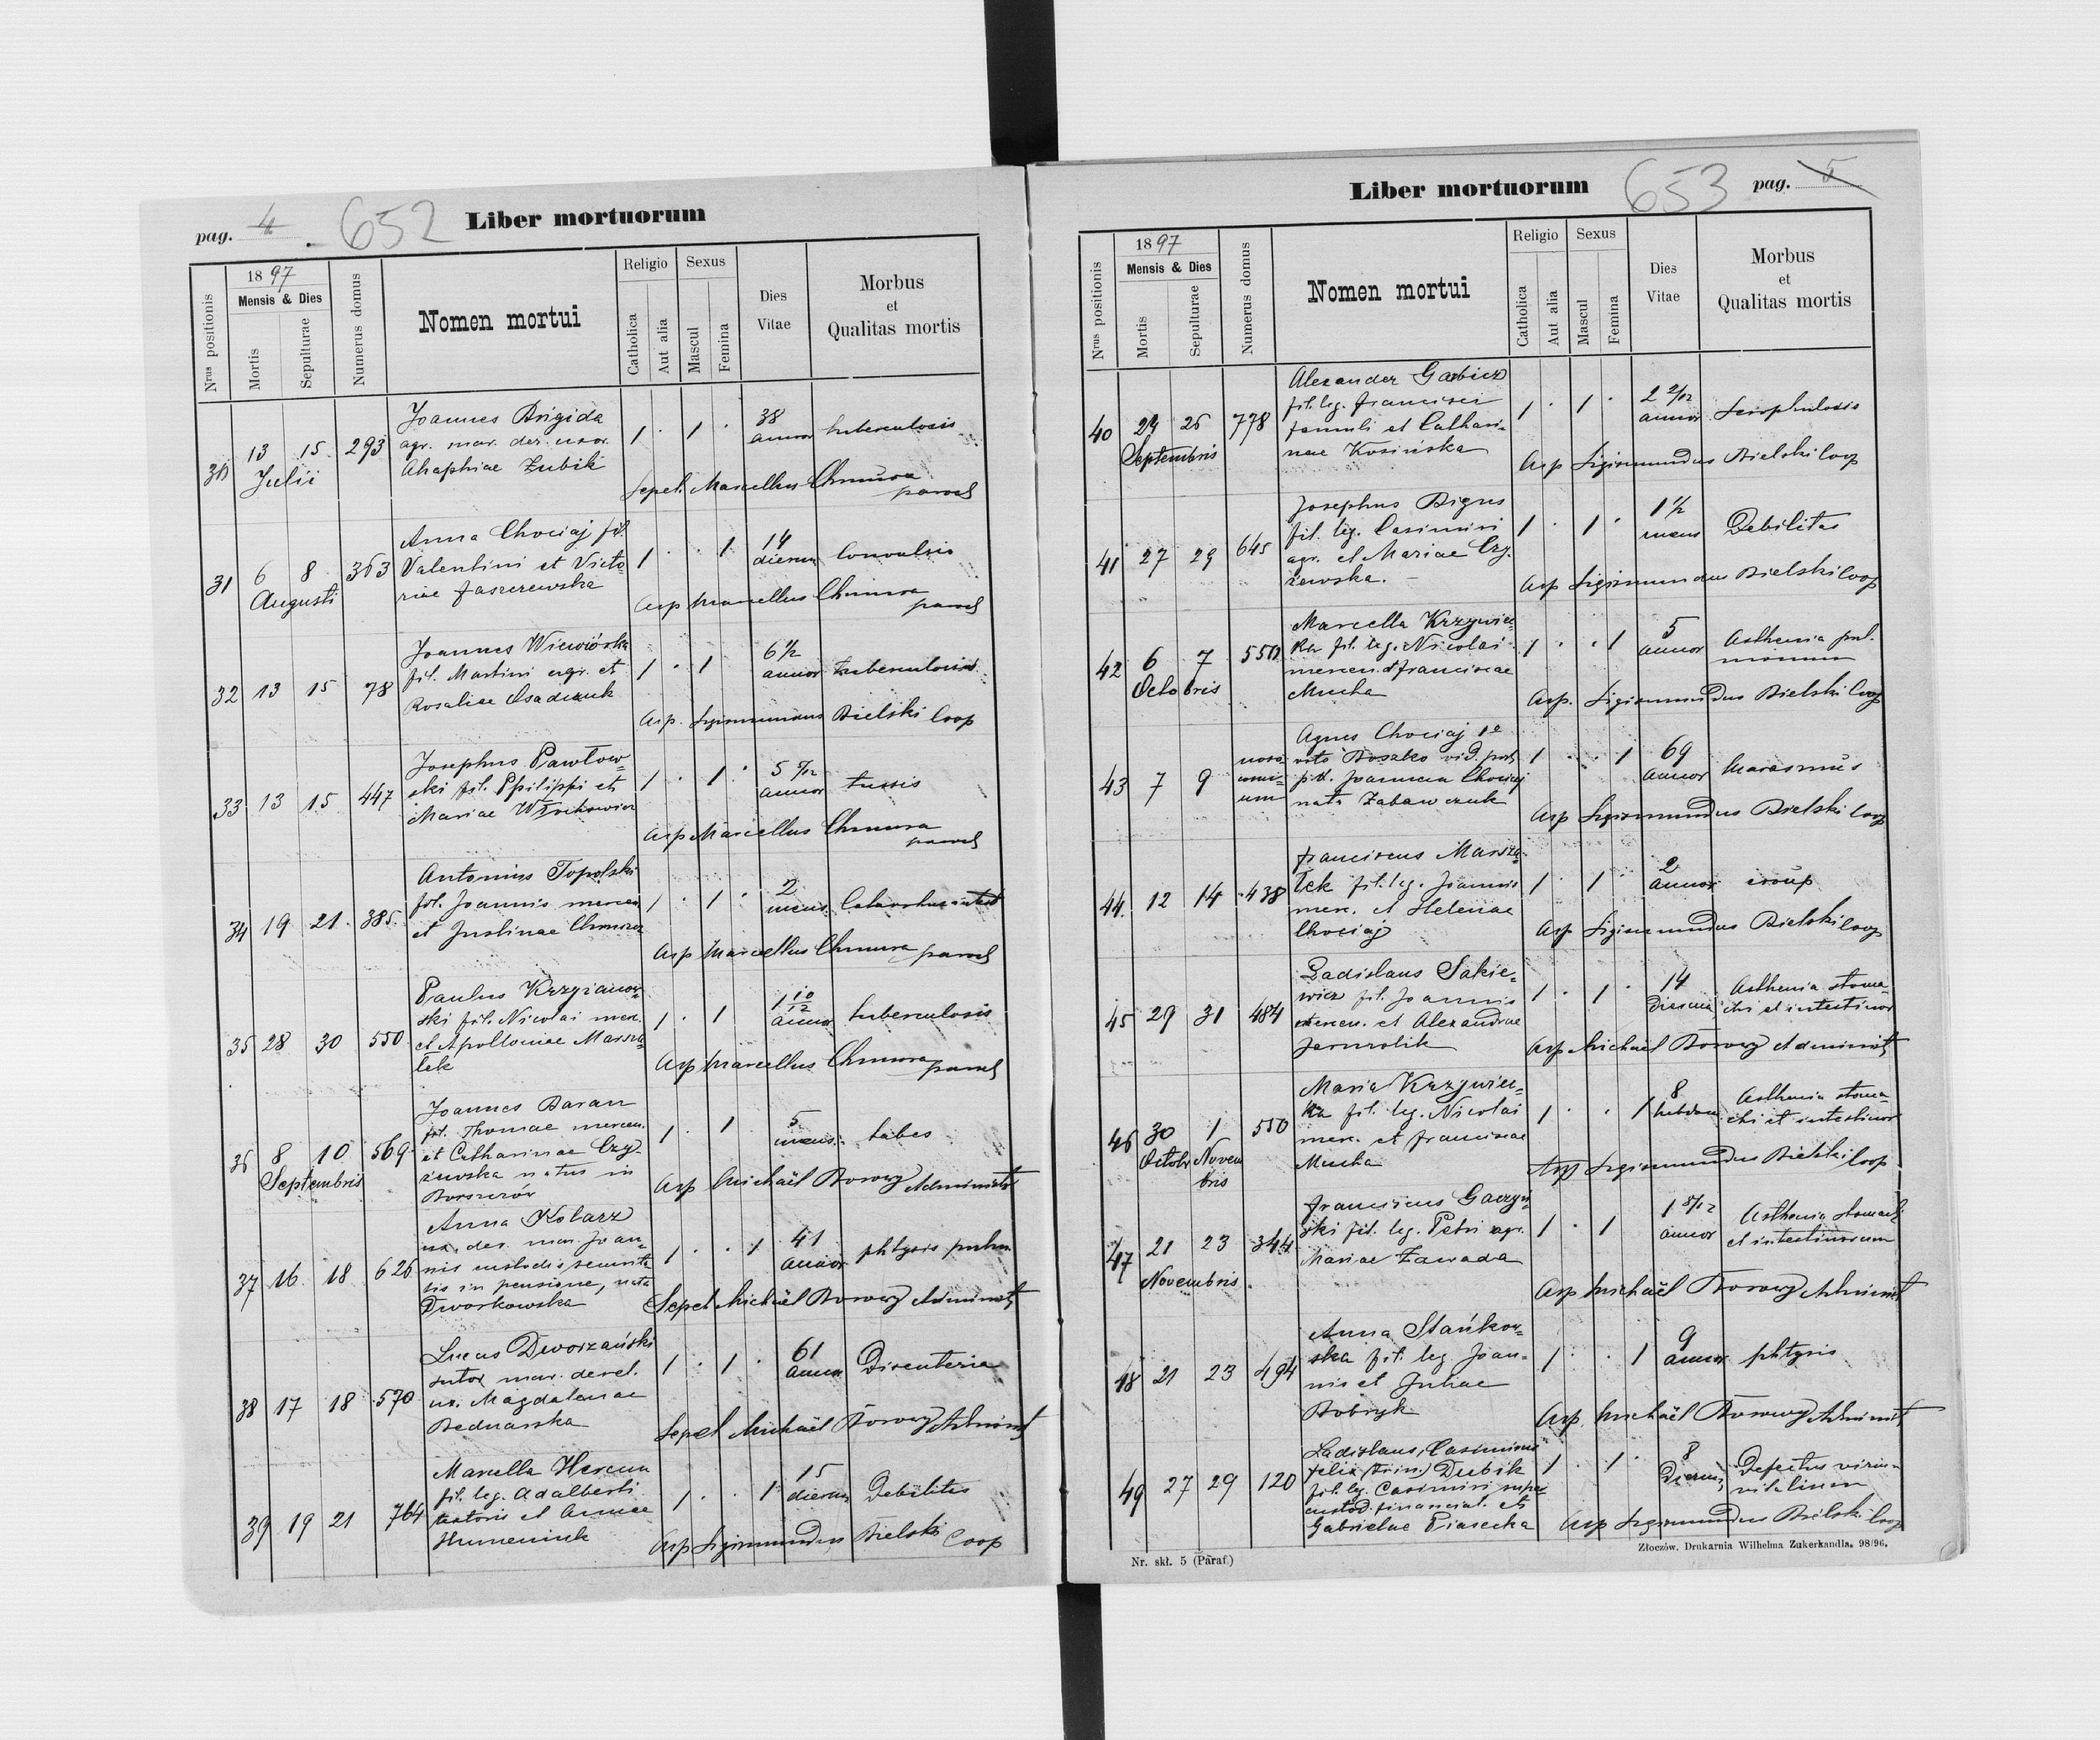 pag. 4
652
Liber mortuorum
Nrus positionis
1897
Mensis & Dies
Mortis
Sepulturae
Numerus domus
Nomen mortui
Religio
Catholica
Aut alia
Sexus
Mascul
Femina
Dies Vitae
Morbus et Qualitas mortis
30 13 15 293 Joannes Brigida 1 · 1 · 38 tuberculosis
Julii agr. mar. der. uxor. annor
Ahaphiae Zubik
Sepel. Marcellus Chmura paroch
31 6 8 363 Anna Chociaj fil. 1 · · 1 14 Convulsio
Augusti Valentini et Victo= dierum
riae Jaszczewska
Asp Marcellus Chmura paroch
32 13 15 78 Joannes Wiewiórka 1 · 1 6 1/2 Tuberculosis
fil. Martini agr. et annor
Rosaliae Osadczuk
Asp. Sigismundus Bielski Coop
33 13 15 447 Josephus Pawłow= 1 · 1 · 5 tussis
ski fil. Philippi et annor
Mariae Włochowicz
Asp Marcellus Chmura paroch
34 19 21 385 Antonius Topolski 1 · 1 · 2
fil. Joannis mercen mens.
et Justinae Chmura
Asp Marcellus Chmura paroch
35 28 30 550 Paulus Krzyżanow= 1 · 1 1 10/12 tuberculosis
ski fil. Nicolai merc. annor
et Apolloniae Marsza=
łek
Asp Marcellus Chmura paroch
36 8 10 569 Joannes Baran 1 · 1 5 tabes
Septembris fil. Thomae mercen. mens.
et Catharinae Czy=
żewska natus in
Borszczów
Asp Michaël Borowy Administr
37 16 18 626 Anna Kolarz 1 · · 1 41 phtysis pulm.
ux. der. mar. Joan= annor
nis custodis securita
tis in pensione, nata
Dworkowska
Sepel Michaël Borowy Administr
38 17 18 570 Lucas Dworzański 1 · 1 · 61 Disenteria
sutor mar. derel. annor
ux. Magdalenae
Bednarska
Sepel Michaël Borowy Administ
39 19 21 764 Marcella Hercun 1 · · 1 15 Debilitas
fil. leg. Adalberti dierum
textoris et Annae
Humeniuk
Asp Sigismundus Bielski Coop
Liber mortuorum
653
pag. 5
Nrus positionis
1897
Mensis & Dies
Mortis
Sepulturae
Numerus domus
Nomen mortui
Religio
Catholica
Aut alia
Sexus
Mascul
Femina
Dies Vitae
Morbus et Qualitas mortis
40 24 26 778 Alexander Garbicz 1 · 1 · 2 2/12 Scrophulosis
Septembris fil. leg. Francisci annor
famuli et Cathari=
nae Kosińska
Asp Sigismundus Bielski Coop
41 27 29 645 Josephus Bigus 1 · 1 · 1 1/2 Debilitas
fil. leg. Casimiri mens
agr. et Mariae Czy=
żewska.
Asp Sigismundus Bielski Coop
42 6 7 550 Marcella Krzywiec= 1 · · 1 5 Asthenia pul=
Octobris ka fil. leg. Nicolai annor monum
mercen. et Franciscae
Mucha
Asp. Sigismundus Bielski Coop
43 7 9 Agnes Chociaj 1º 1 · · 1 69 Marasmus
voto Boszko vid. post annor
p.d. Joannem Chociaj
nata Zabawczuk
Asp Sigismundus Bielski Coop
44 12 14 438 Franciscus Marsza= 1 · 1 · 2 croup
łek fil. leg. Joannis annor
merc. et Helenae
Chociaj
Asp Sigismundus Bielski Coop
45 29 31 484 Ladislaus Sakie= 1 · 1 · 14 Asthenia stoma=
wicz fil. Joannis dierum chi et intestinor
mercen. et Alexandrae
Jarmolik
Asp Michaël Borowy Administ
46 30 1 550 Maria Krzywiec= 1 · · 1 8 Asthenia stoma=
Octobr Novem ka fil. leg. Nicolai hebdom. chi et intestinor
bris merc. et Franciscae
Mucha
Asp Sigismundus Bielski Coop
47 21 23 344 Franciscus Gaczyń= 1 · 1 1 8/12 Asthenia stomachi
Novembris ski fil. leg. Petri agr. annor et intestinorum
Mariae Zawada
Asp Michaël Borowy Administ
48 21 23 494 Anna Stańkow= 1 · · 1 9 phtysis
ska fil. leg Joan= annor
nis et Juliae
Bobryk
Asp. Michaël Borowy Administ
49 27 29 120 Ladislaus, Casimirus 1 · 1 · 8 Defectus virium
Felix (trin.) Dubik dierum vitalium
fil. leg. Casimiri
custod. financial. et
Gabrielae Piasecka
Asp Sigismundus Bielski Coop
Nr. skł. 5 (Paraf.)
Złoczów. Drukarnia Wilhelma Zukerkandla. 98/96.